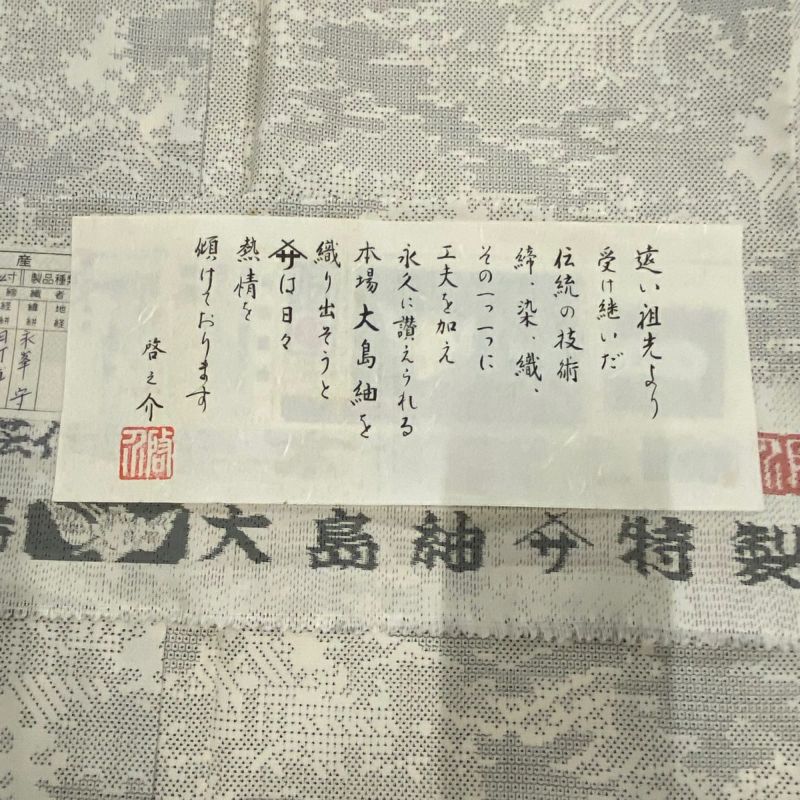 遠い祖先より
受け継いだ
伝統の技術
締、染、織、
その一つ一つに
工夫を加え
永久に讃えられる
本場大島紬を
織り出そうと
サは日々
熱情を
傾けております
啓之介
産
寸 製品種類
締 織 者
経 緯 地
絣 絣 経
大島紬 サ 特製